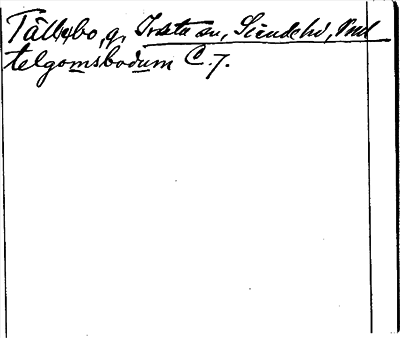 Tällbo, g, Irsta sn, Siende hd, Vml
telgomsbodum C. 7.